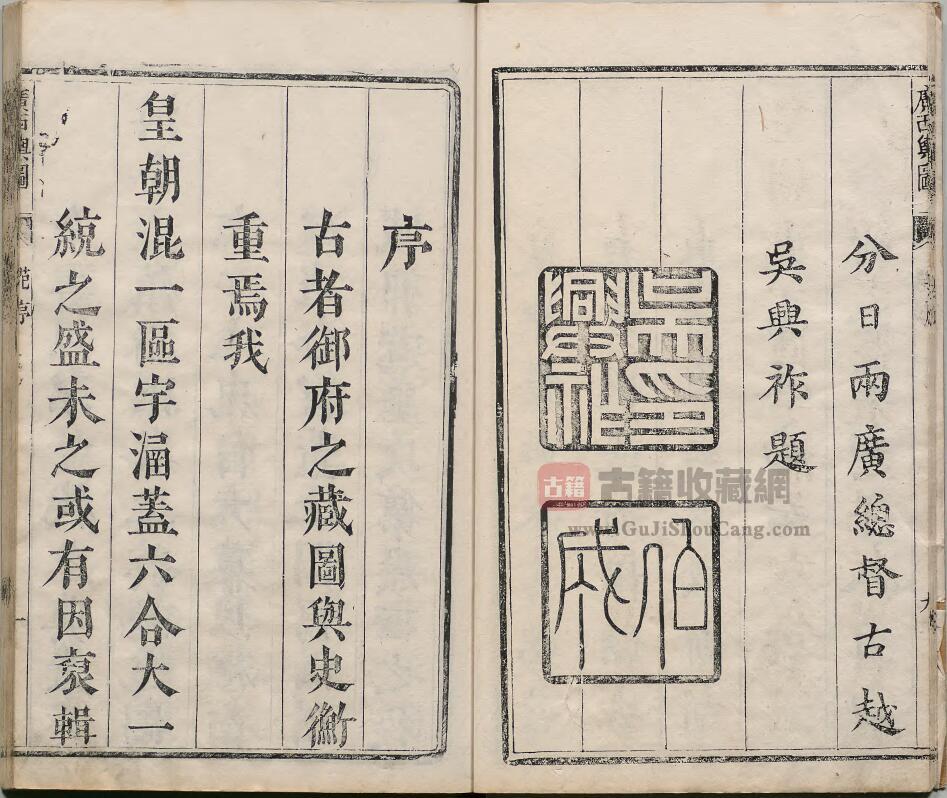 分日兩廣總督古越
吳興祚題
伯成
序
古者御府之藏圖與史衡
重焉我
皇朝混一區宇涵蓋六合大一
統之盛未之或有因裒輯
廣西輿圖
古籍
古籍收藏網
www.GuJiShouCang.com